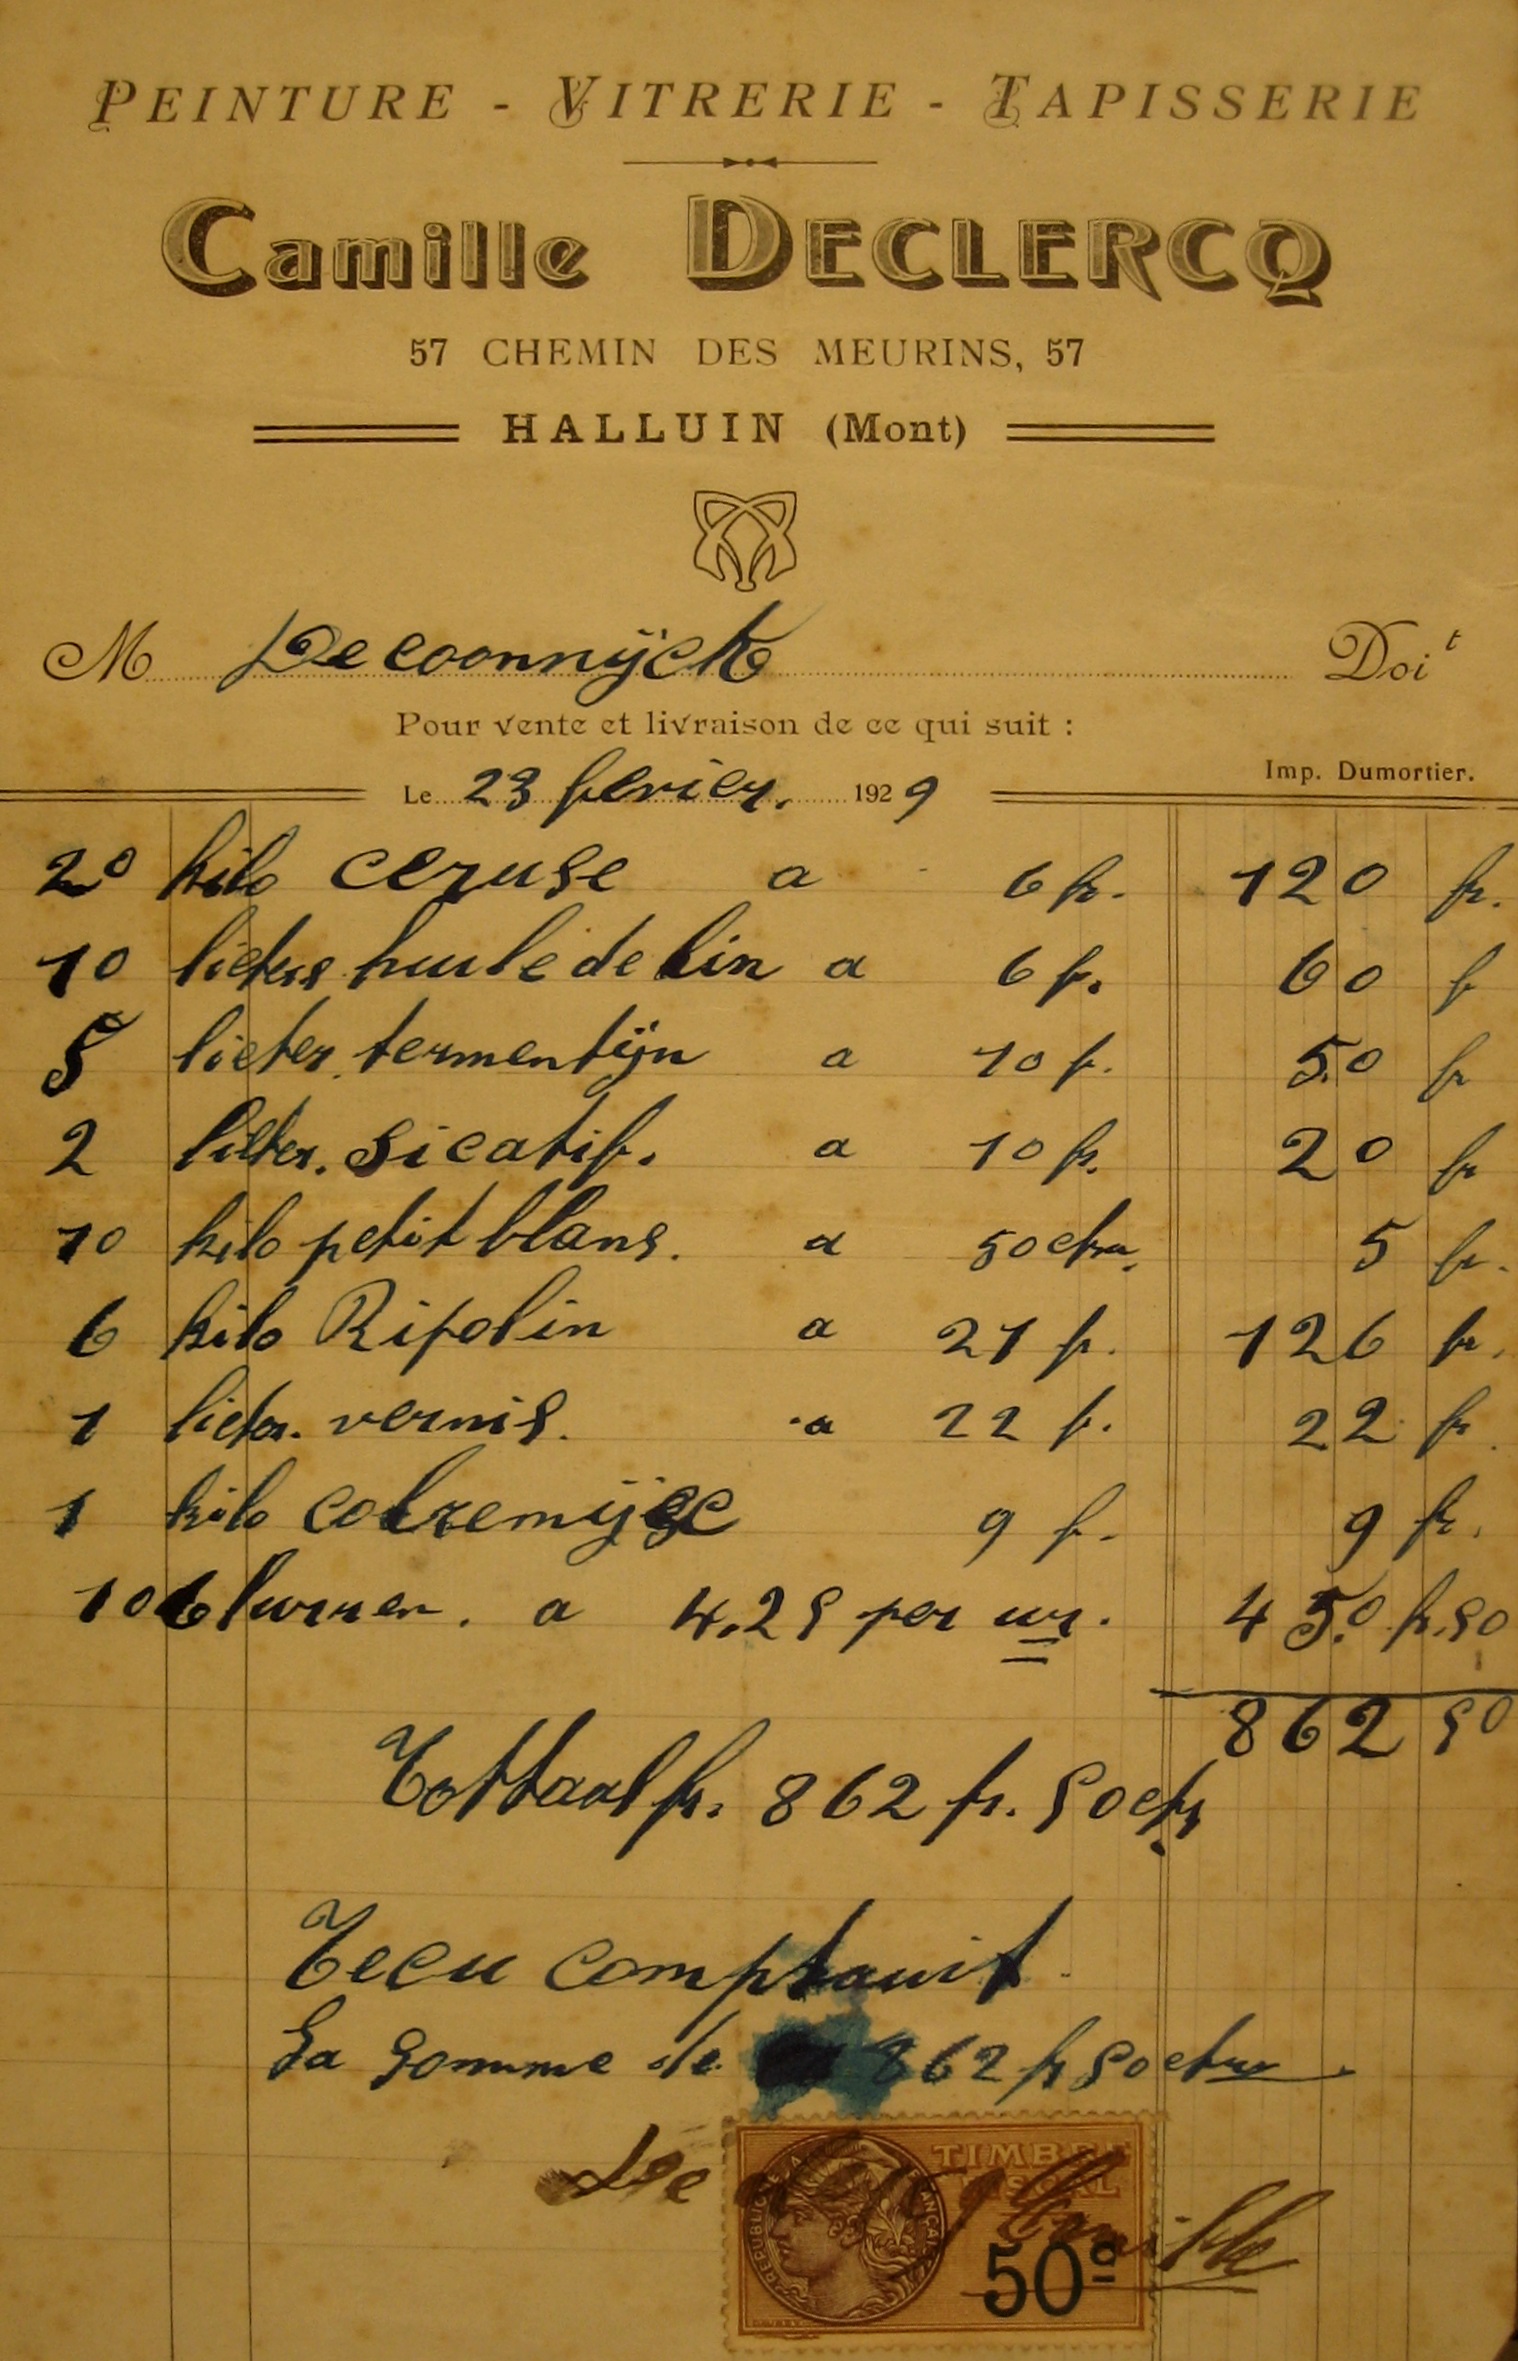 PEINTURE - VITRERIE - TAPISSERIE
Camille DECLERCQ
57 CHEMIN DES MEURINS, 57
HALLUIN (Mont)
M Decoonnÿck Doit
Pour vente et livraison de ce qui suit :
Imp. Dumortier.
Le 23 fevrier. 1929
20 kilo ceruse a 6 fr. 120 fr.
10 lieters huile de lin a 6 fr. 60 fr
5 lieter termentÿn a 10 fr. 50 fr
2 lieter. sicatif. a 10 fr. 20 fr
10 kilo petit blans. a 50 ctm. 5 fr.
6 kilo Ripolin a 21 fr. 126 fr.
1 lieter. vernis. a 22 fr. 22 fr.
1 kilo 9 fr. 9 fr.
106 uuren. a 4.25 per ur. 450 fr. 50
862 50
Tottaal fr. 862 fr. 50 cts
Recu comptant
La somme de 862 fr 50 ctm
De Camille
TIMBRE
FISCAL
REPUBLIQUE FRANÇAISE
50c